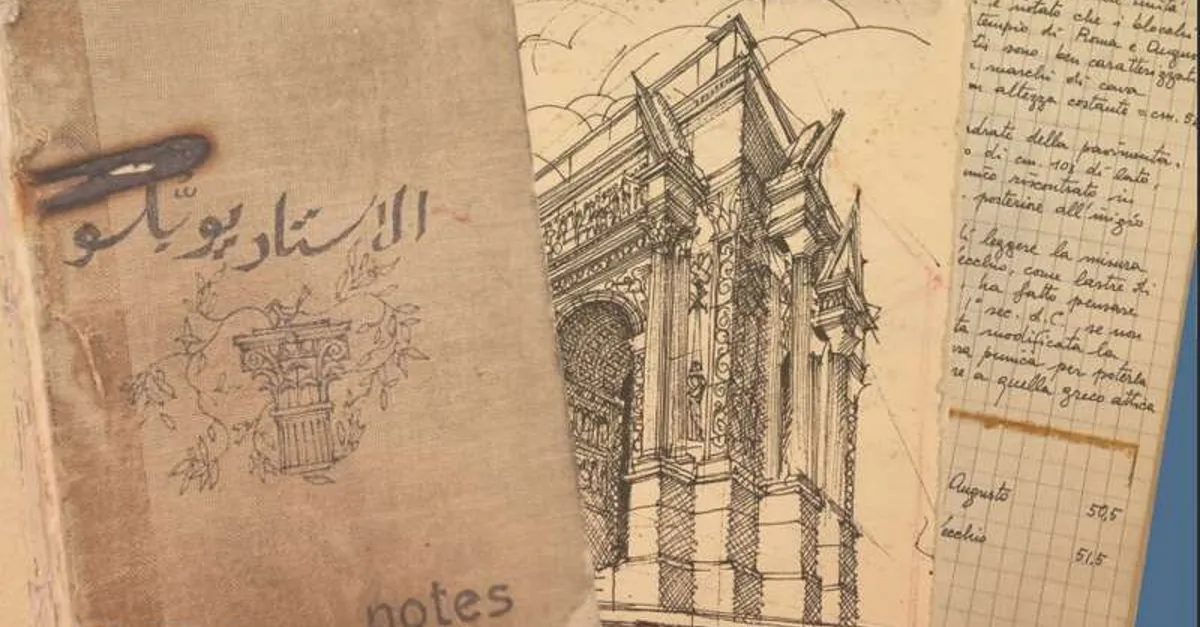 الاستاد يوبّلو
notes
è notato che i blocchi
tempio di Roma e Augus
tis sono ben caratterizzati
i marchi di cava
m altezza costante = cm. 5
drate della pavimenta.
o di cm. 103 di lato,
unico riscontrato in
posteriore all'inizio
leggere la misura
ecchio, come lastre di
ha fatto pensare
1° sec. d.C. se non
ta modificata la
ra punica per poterla
re a quella greco attica
Augusto 50,5
ecchio 51,5